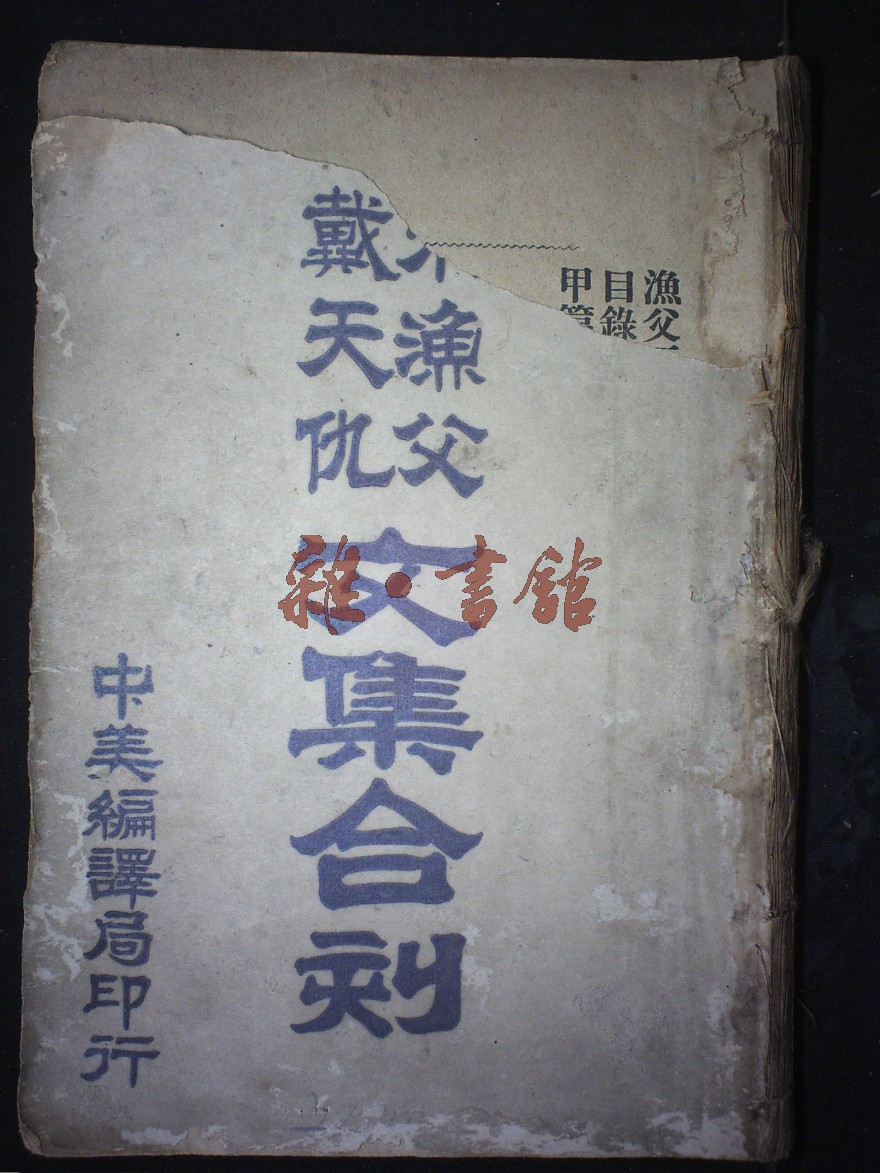 漁父
目錄
甲
漁父
戴天仇
文集合刻
中美編譯局印行
雜·書館